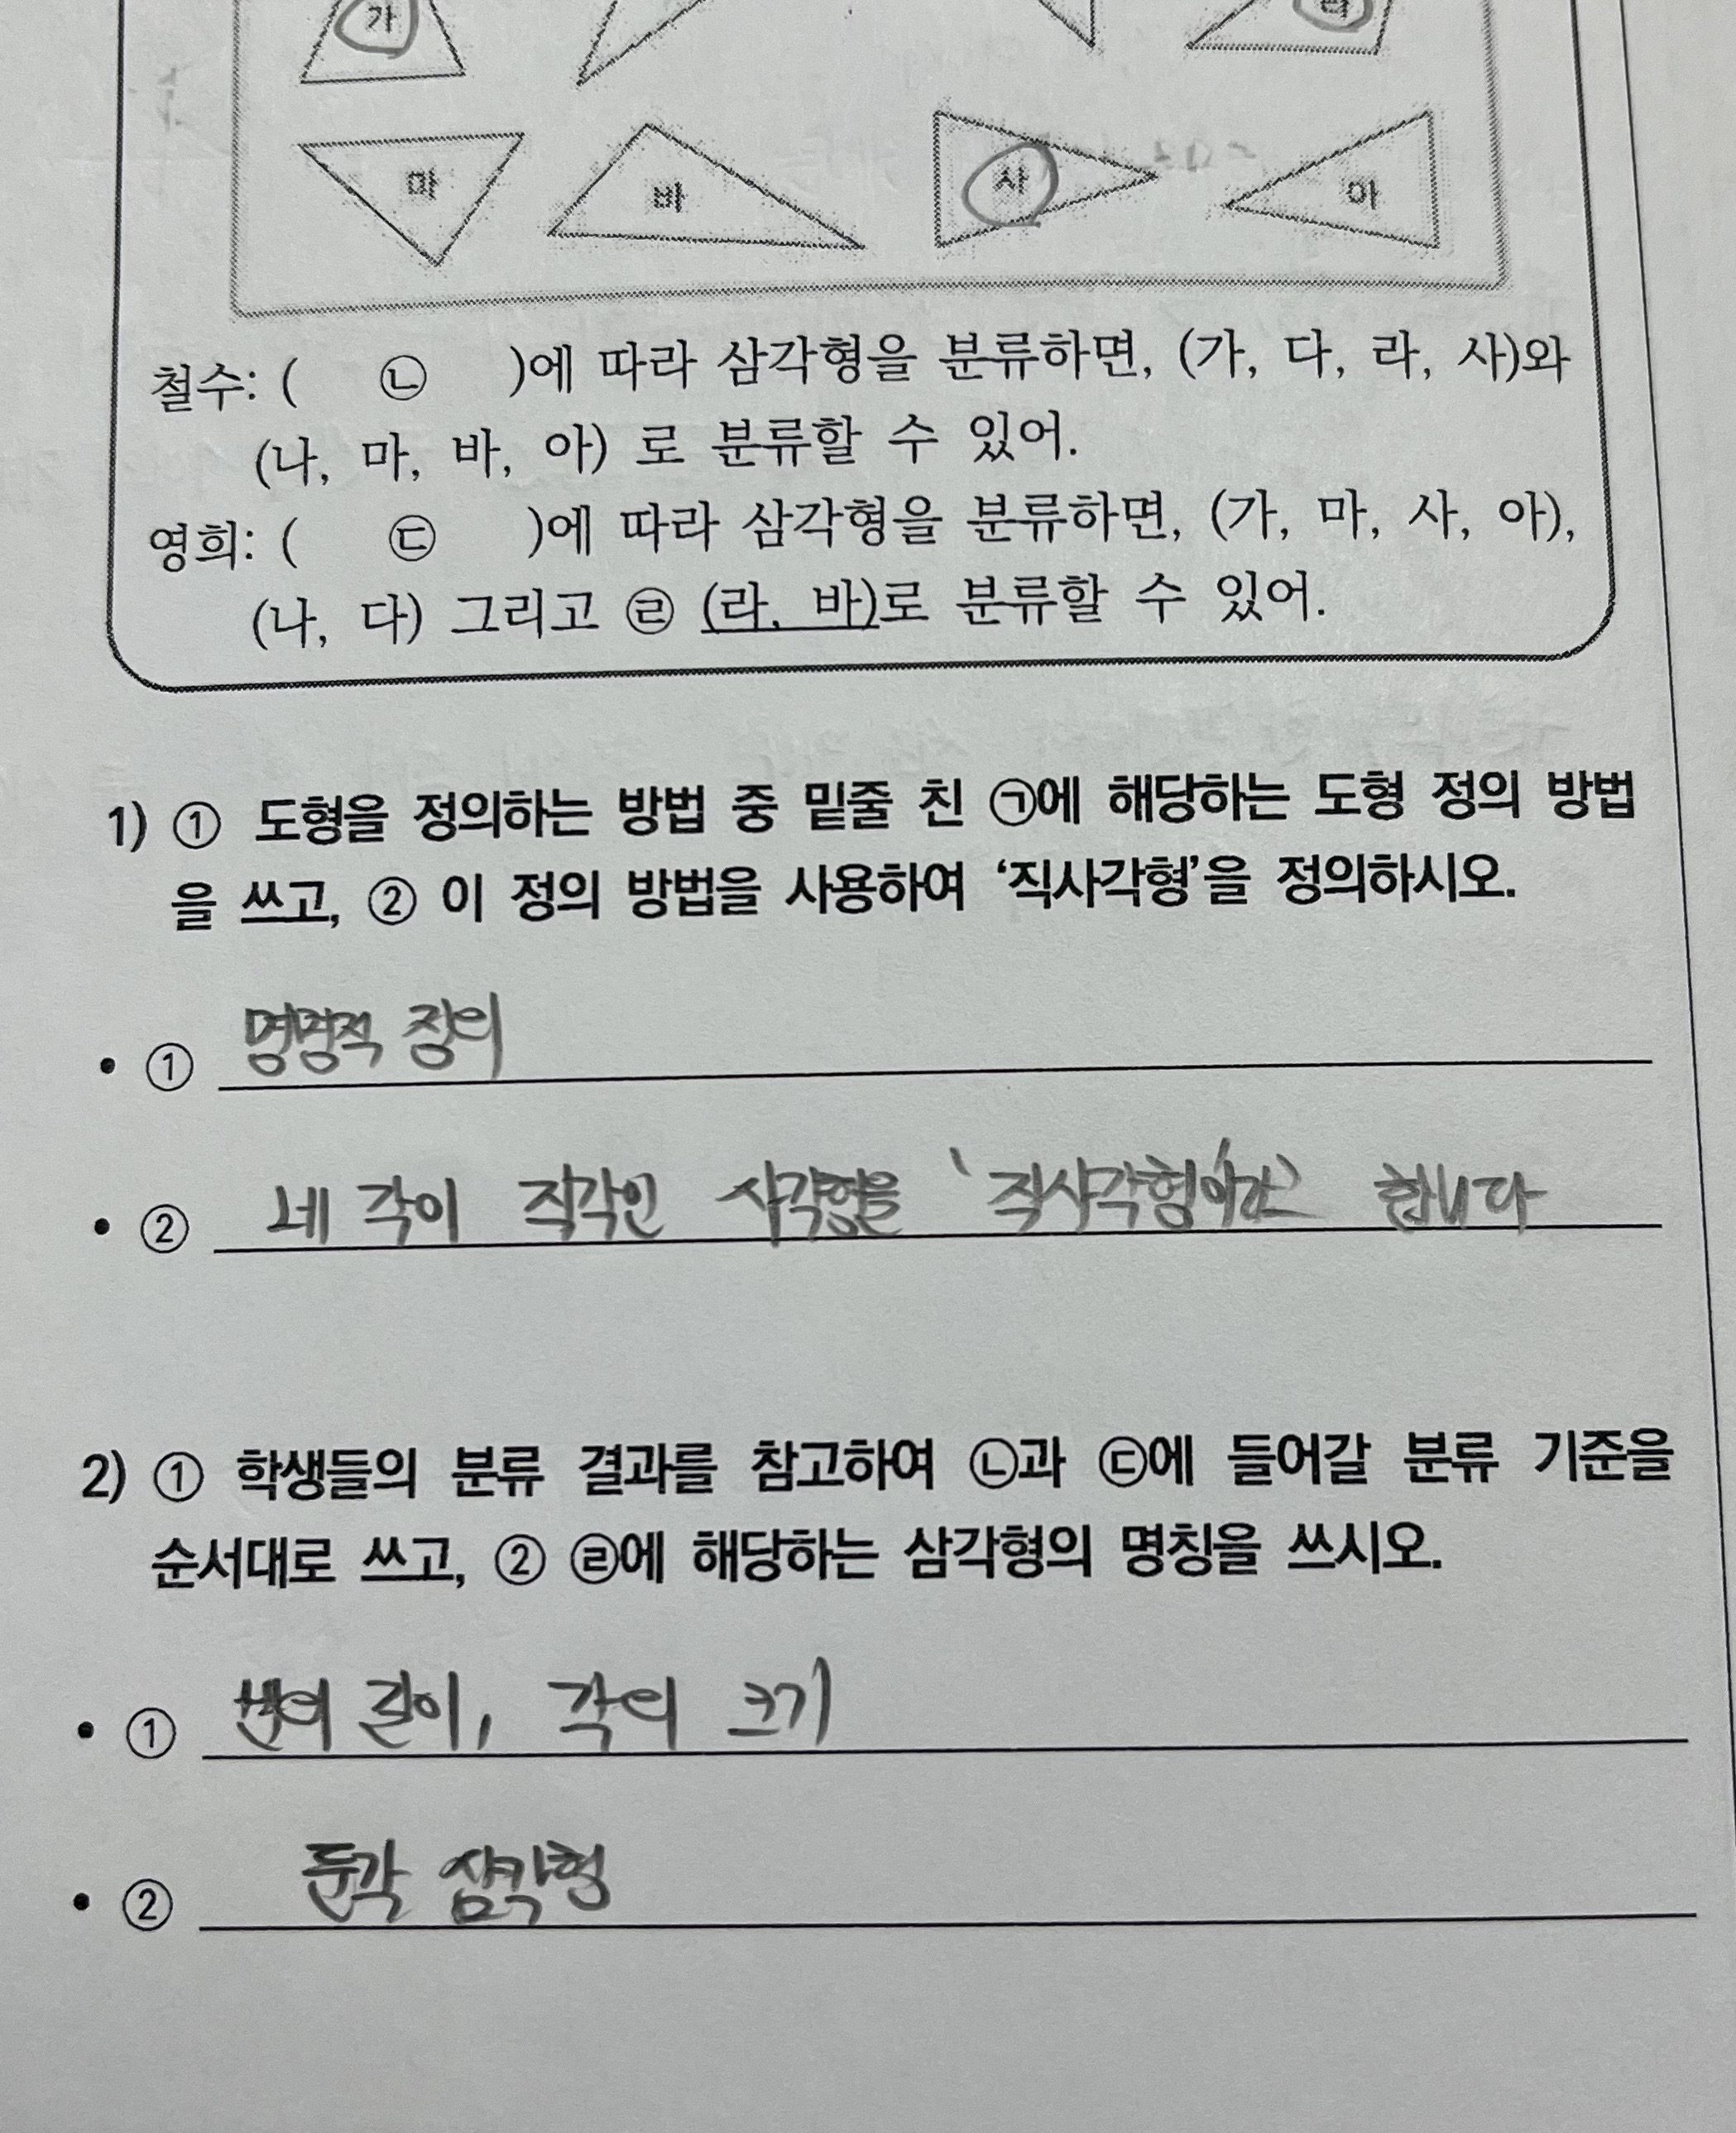 가 라
마 바 사 아
철수: ( ㉡ )에 따라 삼각형을 분류하면, (가, 다, 라, 사)와
(나, 마, 바, 아) 로 분류할 수 있어.
영희: ( ㉢ )에 따라 삼각형을 분류하면, (가, 마, 사, 아),
(나, 다) 그리고 ㉣ (라, 바)로 분류할 수 있어.
1) ① 도형을 정의하는 방법 중 밑줄 친 ㉠에 해당하는 도형 정의 방법
을 쓰고, ② 이 정의 방법을 사용하여 ‘직사각형’을 정의하시오.
• ① 명명적 정의
• ② 네 각이 직각인 사각형을 '직사각형'이라고 합니다
2) ① 학생들의 분류 결과를 참고하여 ㉡과 ㉢에 들어갈 분류 기준을
순서대로 쓰고, ② ㉣에 해당하는 삼각형의 명칭을 쓰시오.
• ① 변의 길이, 각의 크기
• ② 둔각 삼각형